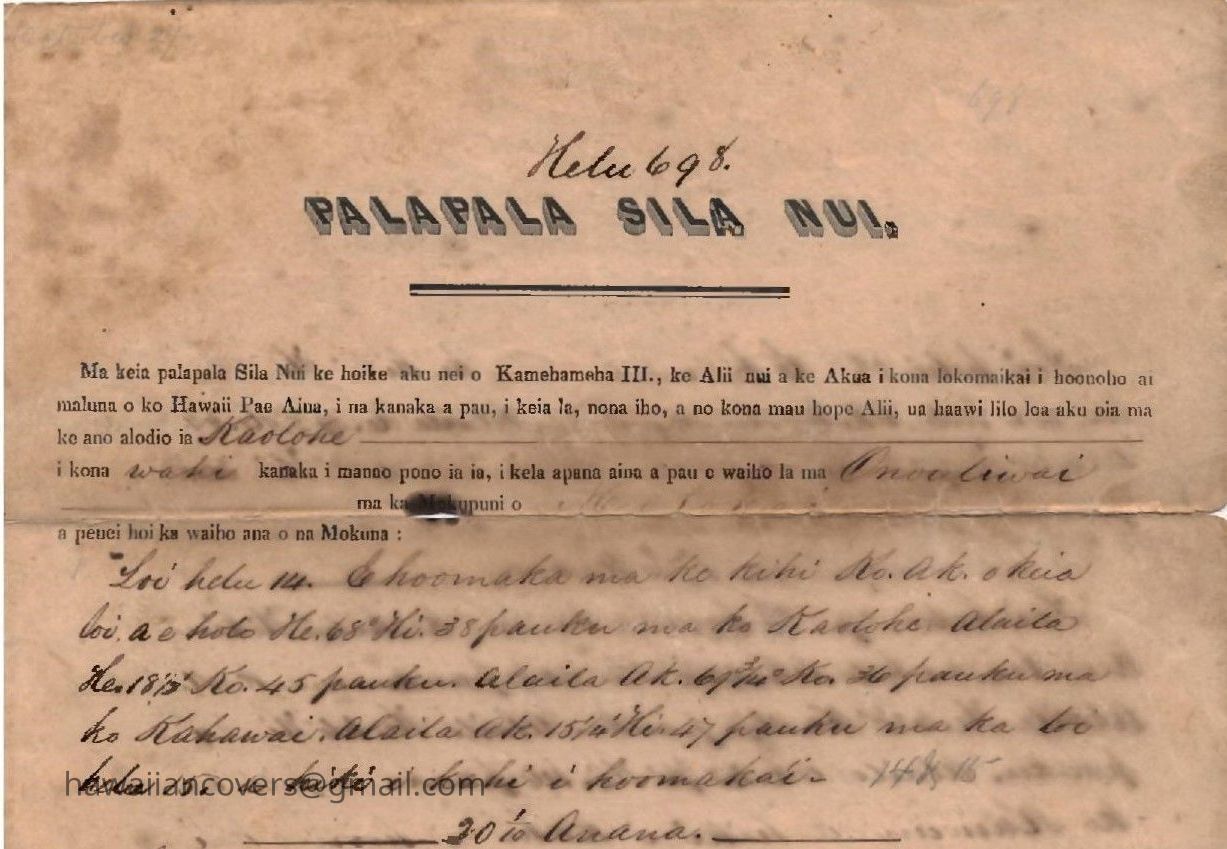 698
Helu 698.
PALAPALA SILA NUI.
Ma keia palapala Sila Nui ke hoike aku nei o Kamehameha III., ke Alii nui a ke Akua i kona lokomaikai i hoonoho ai
maluna o ko Hawaii Pae Aina, i na kanaka a pau, i keia la, nona iho, a no kona mau hope Alii, ua haawi lilo loa aku oia ma
ke ano alodio ia Kaolohe
i kona wahi kanaka i manao pono ia ia, i kela apana aina a pau e waiho la ma Onouliwai
ma ka Mokupuni o
a penei hoi ka waiho ana o na Mokuna :
Loi helu 14. E hoomaka ma ke kihi Ko. Ak. o keia
loi. a e holo He. 68° Hi. 38 pauku ma ko Kaolohe. Alaila
He. Ko. 45 pauku. Alaila Ak. Ko. 36 pauku ma
ko Kahawai. Alaila Ak. 15 1/4° Hi. 47 pauku ma ka loi
helu 15. i hoomaka'i.
hawaiiancovers@gmail.com
Anana.